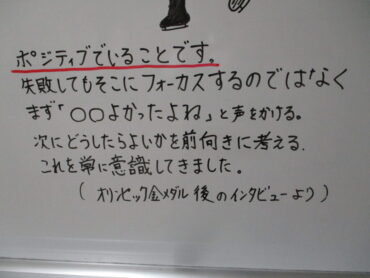 ポジティブでいることです。
失敗してもそこにフォーカスするのではなく
まず「○○よかったよね」と声をかける。
次にどうしたらよいかを前向きに考える.
これを常に意識してきました。
(オリンピック金メダル後のインタビューより)